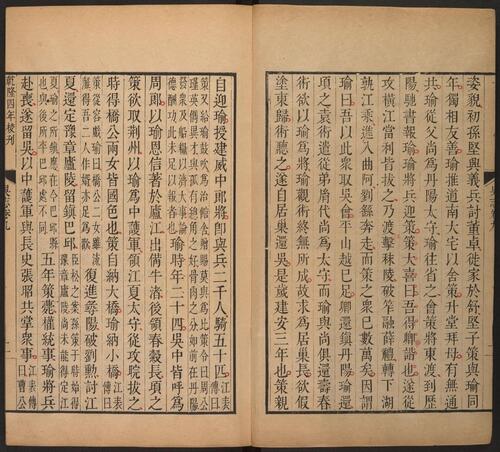 姿貌初孫堅興義兵討董卓徙家於舒堅子策與瑜同
年獨相友善瑜推道南大宅以舍策升堂拜母有無通
共瑜從父尚為丹陽太守瑜往省之會策將東渡到歷
陽馳書報瑜瑜將兵迎策策大喜曰吾得卿諧也遂從
攻橫江當利皆拔之乃渡擊秣陵破笮融薛禮轉下湖
孰江乘進入曲阿劉繇奔走而策之衆已數萬矣因謂
瑜曰吾以此衆取吳會平山越已足卿還鎮丹陽瑜還
頃之袁術遣從弟胤代尚為太守而瑜與尚俱還壽春
術欲以瑜為將瑜觀術終無所成故求為居巢長欲假
塗東歸術聽之遂自居巢還吳是歲建安三年也策親
自迎瑜授建威中郎將卽與兵二千人騎五十匹江表傳曰
策又給瑜鼓吹為治館舍贈賜莫與為比策令曰周公
瑾英儁異才與孤有總角之好骨肉之分如前在丹陽
發衆及船糧以濟大事論德酬功此未足以報者也瑜時年二十四吳中皆呼為
周郎以瑜恩信著於廬江出備牛渚後領春穀長頃之
策欲取荆州以瑜為中護軍領江夏太守從攻皖拔之
時得橋公兩女皆國色也策自納大橋瑜納小橋江表傳曰
策從容戲瑜曰橋公二女雖流離得吾二人作壻亦足為歡復進尋陽破劉勳討江
夏還定豫章廬陵留鎮巴邱臣松之案孫策于時始得豫章廬陵尚未能得定江
夏瑜之所鎮應在今巴邱縣也與後所平巴邱處不同五年策薨權統事瑜將兵
赴喪遂留吳以中護軍與長史張昭共掌衆事江表傳曰曹公
乾隆四年校刊